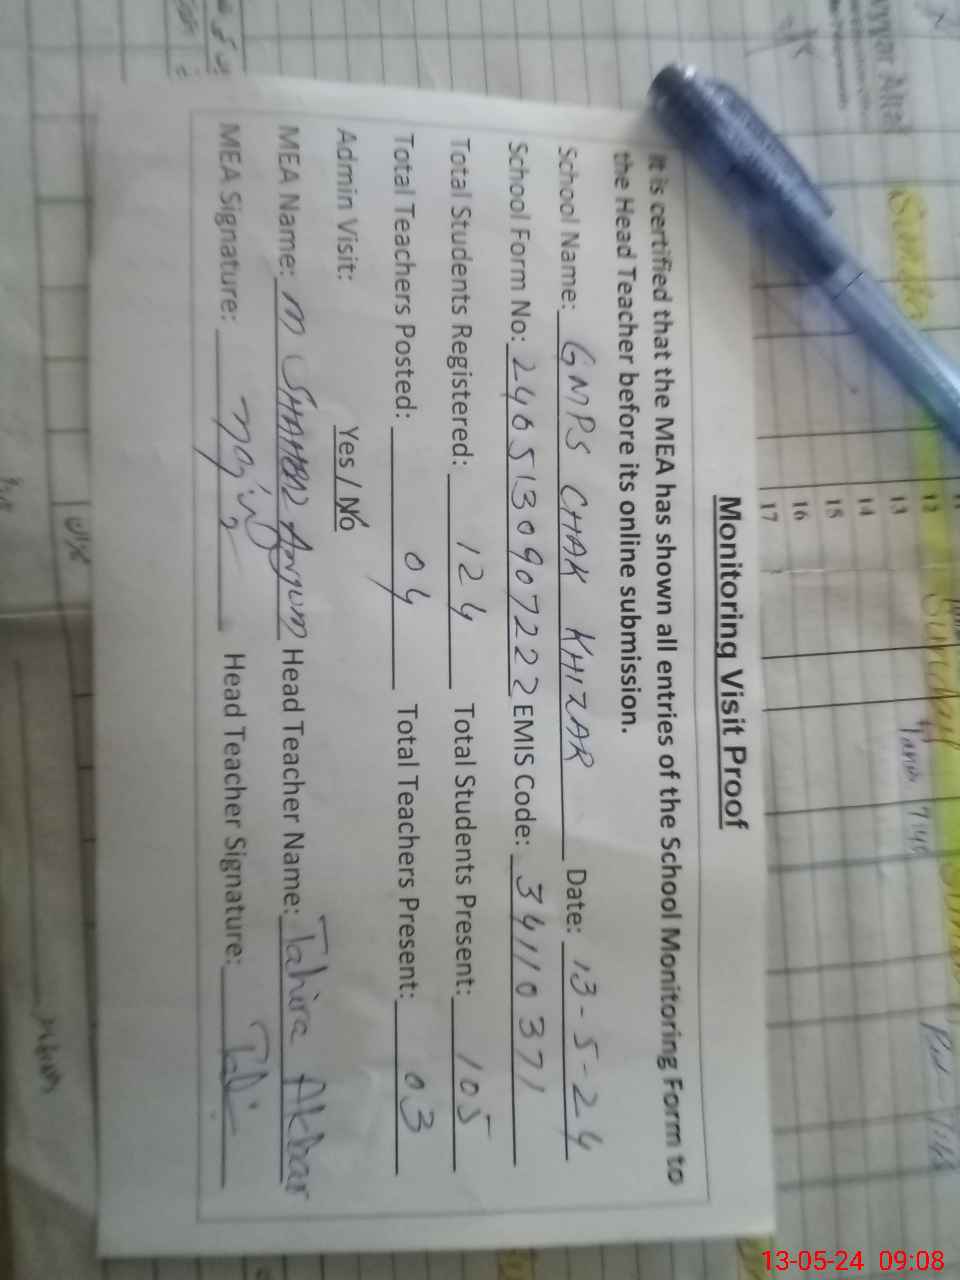 Monitoring Visit Proof
It is certified that the MEA has shown all entries of the School Monitoring Form to
the Head Teacher before its online submission.
School Name: GMPS CHAK KHIZAR Date: 13-5-24
School Form No: 2405130907222 EMIS Code: 34110371
Total Students Registered: 124 Total Students Present: 105
Total Teachers Posted: 04 Total Teachers Present: 03
Admin Visit: Yes / No
MEA Name: M SHAHBAZ Anjum Head Teacher Name: Tahira Akhar
MEA Signature: Head Teacher Signature:
12
13
14
15
16
17
13-05-24 09:08